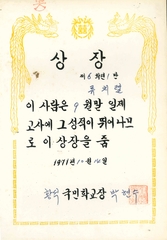 상장
제 6 학년 1 반
이 사람은 9 월말 일제
고사에 그 성적이 뛰어나므
로 이 상장을 줌
1971년 10월 14일
국민학교장 박현수